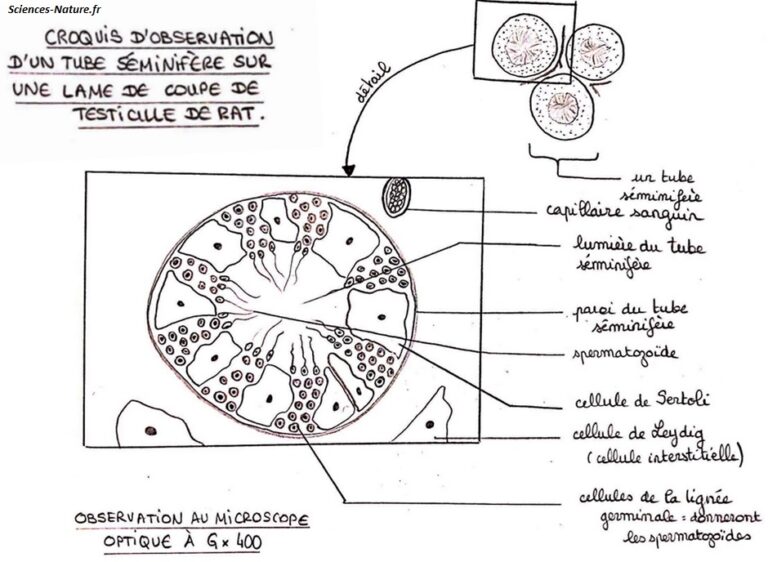 Sciences-Nature.fr
CROQUIS D'OBSERVATION
D'UN TUBE SÉMINIFÈRE SUR
UNE LAME DE COUPE DE
TESTICULE DE RAT.
détail
un tube
séminifère
capillaire sanguin
lumière du tube
séminifère
paroi du tube
séminifère
spermatozoïde
cellule de Sertoli
cellule de Leydig
(cellule interstitielle)
cellules de la lignée
germinale = donneront
les spermatozoïdes
OBSERVATION AU MICROSCOPE
OPTIQUE À G x 400